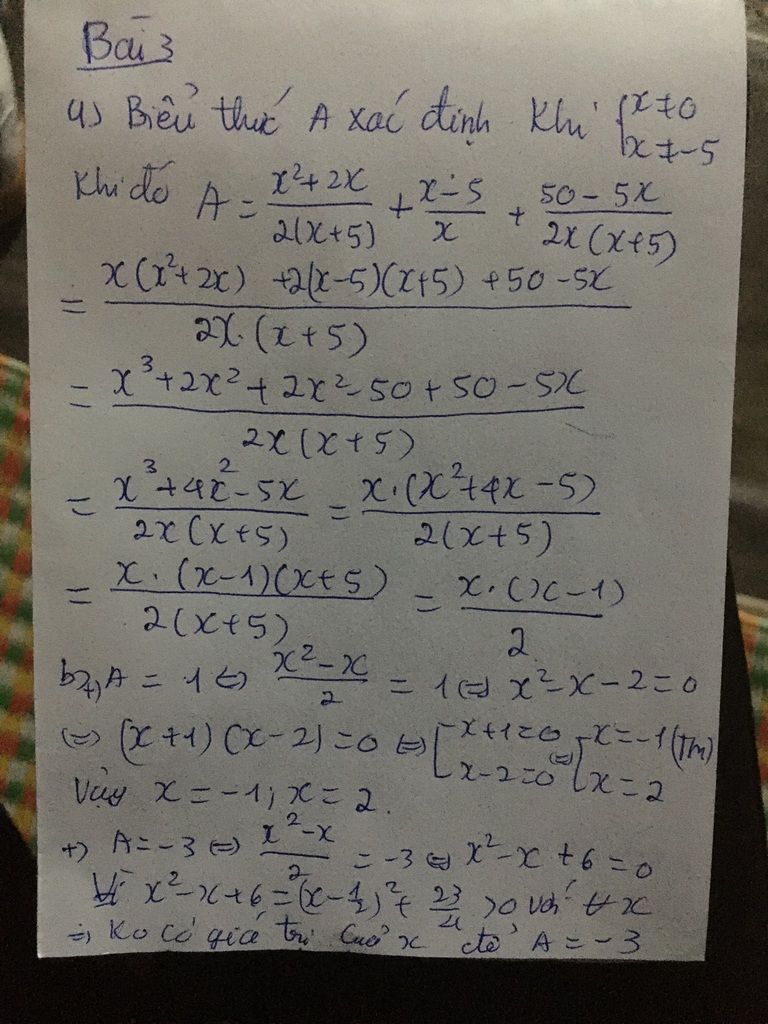 Bài 3
a) Biểu thức A xác định khi { x ≠ 0
x ≠ -5
Khi đó A = \frac{x^2+2x}{2(x+5)} + \frac{x-5}{x} + \frac{50-5x}{2x(x+5)}
= \frac{x(x^2+2x) +2(x-5)(x+5) +50-5x}{2x.(x+5)}
= \frac{x^3+2x^2+2x^2-50+50-5x}{2x(x+5)}
= \frac{x^3+4x^2-5x}{2x(x+5)} = \frac{x.(x^2+4x-5)}{2(x+5)}
= \frac{x.(x-1)(x+5)}{2(x+5)} = \frac{x.(x-1)}{2}
b, +) A = 1 ⇔ \frac{x^2-x}{2} = 1 ⇔ x^2-x-2=0
⇔ (x+1)(x-2)=0 ⇔ [ x+1=0 ⇔ [ x=-1 (TM)
x-2=0 x=2
Vậy x = -1; x = 2.
+) A=-3 ⇔ \frac{x^2-x}{2} = -3 ⇔ x^2-x+6=0
Vì x^2-x+6=(x-\frac{1}{2})^2+\frac{23}{4} >0 với ∀x
⇒ Ko có giá trị của x để A = -3